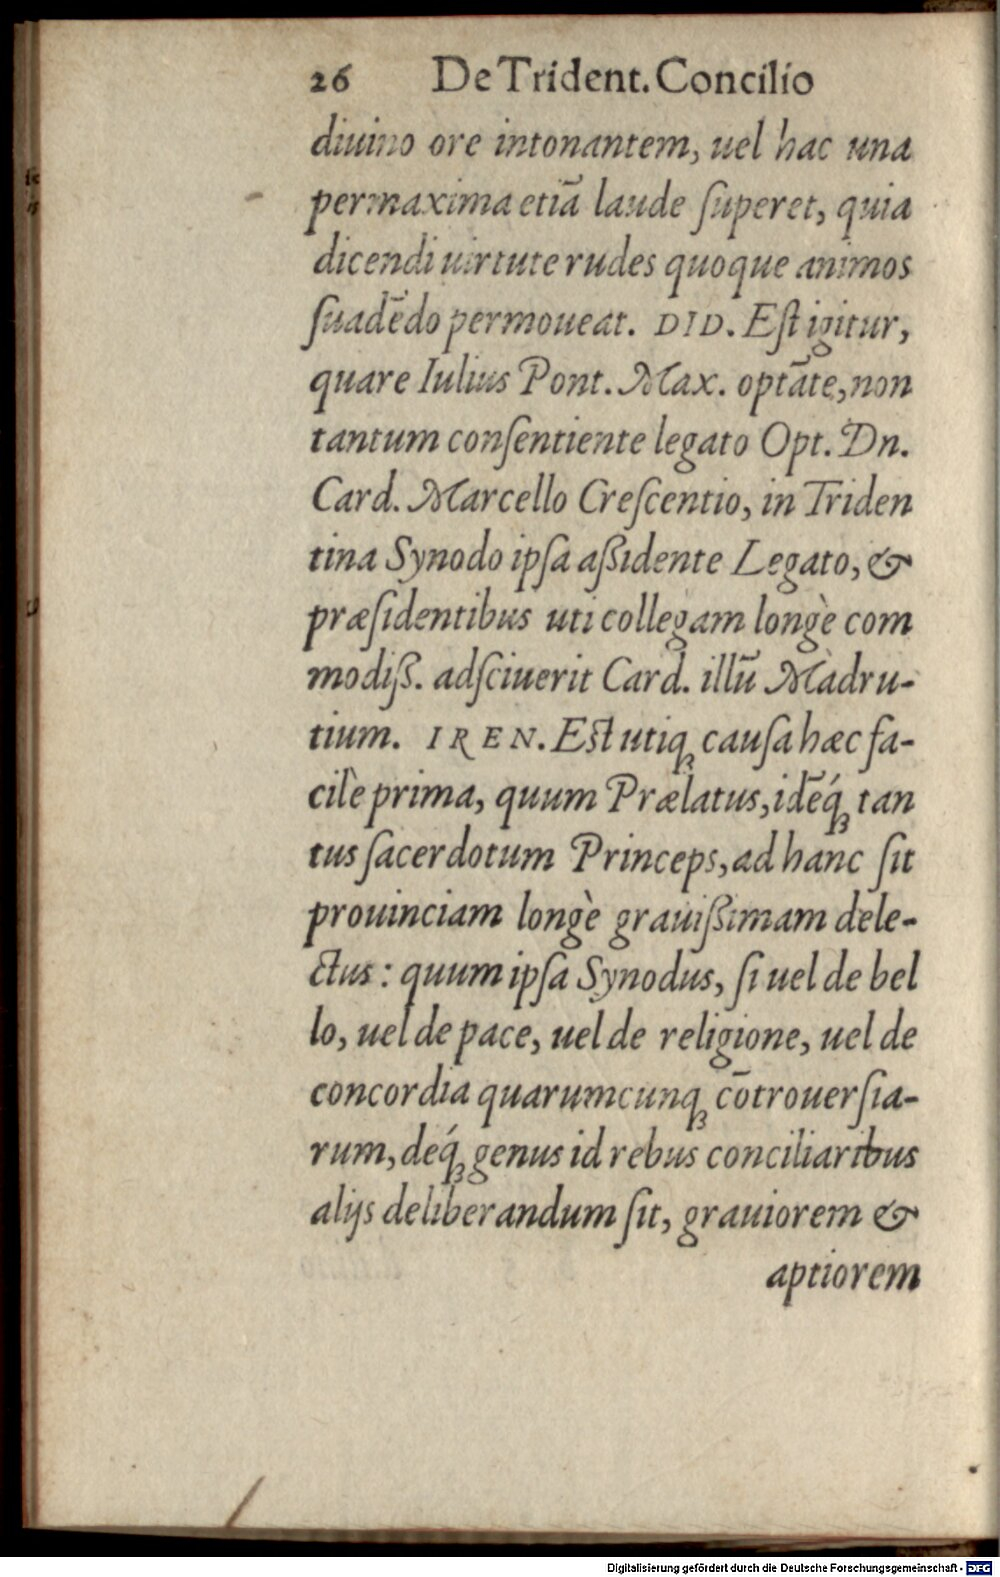 26 De Trident. Concilio
diuino ore intonantem, uel hac una
permaxima etiā laude ſuperet, quia
dicendi uirtute rudes quoque animos
ſuadēdo permoueat. DID. Eſt igitur,
quare Iulius Pont. Max. optāte, non
tantum conſentiente legato Opt. Dn.
Card. Marcello Creſcentio, in Triden
tina Synodo ipſa aßidente Legato, &
præſidentibus uti collegam longè com
modiß. adſciuerit Card. illū Madru-
tium. IREN. Eſt utiq; cauſa hæc fa-
cilè prima, quum Prælatus, idēq́; tan
tus ſacerdotum Princeps, ad hanc ſit
prouinciam longè grauißimam dele-
ctus: quum ipſa Synodus, ſi uel de bel
lo, uel de pace, uel de religione, uel de
concordia quarumcunq; cōtrouerſia-
rum, deq́; genus id rebus conciliaribus
alijs deliberandum ſit, grauiorem &
aptiorem
Digitalisierung gefördert durch die Deutsche Forschungsgemeinschaft - DFG